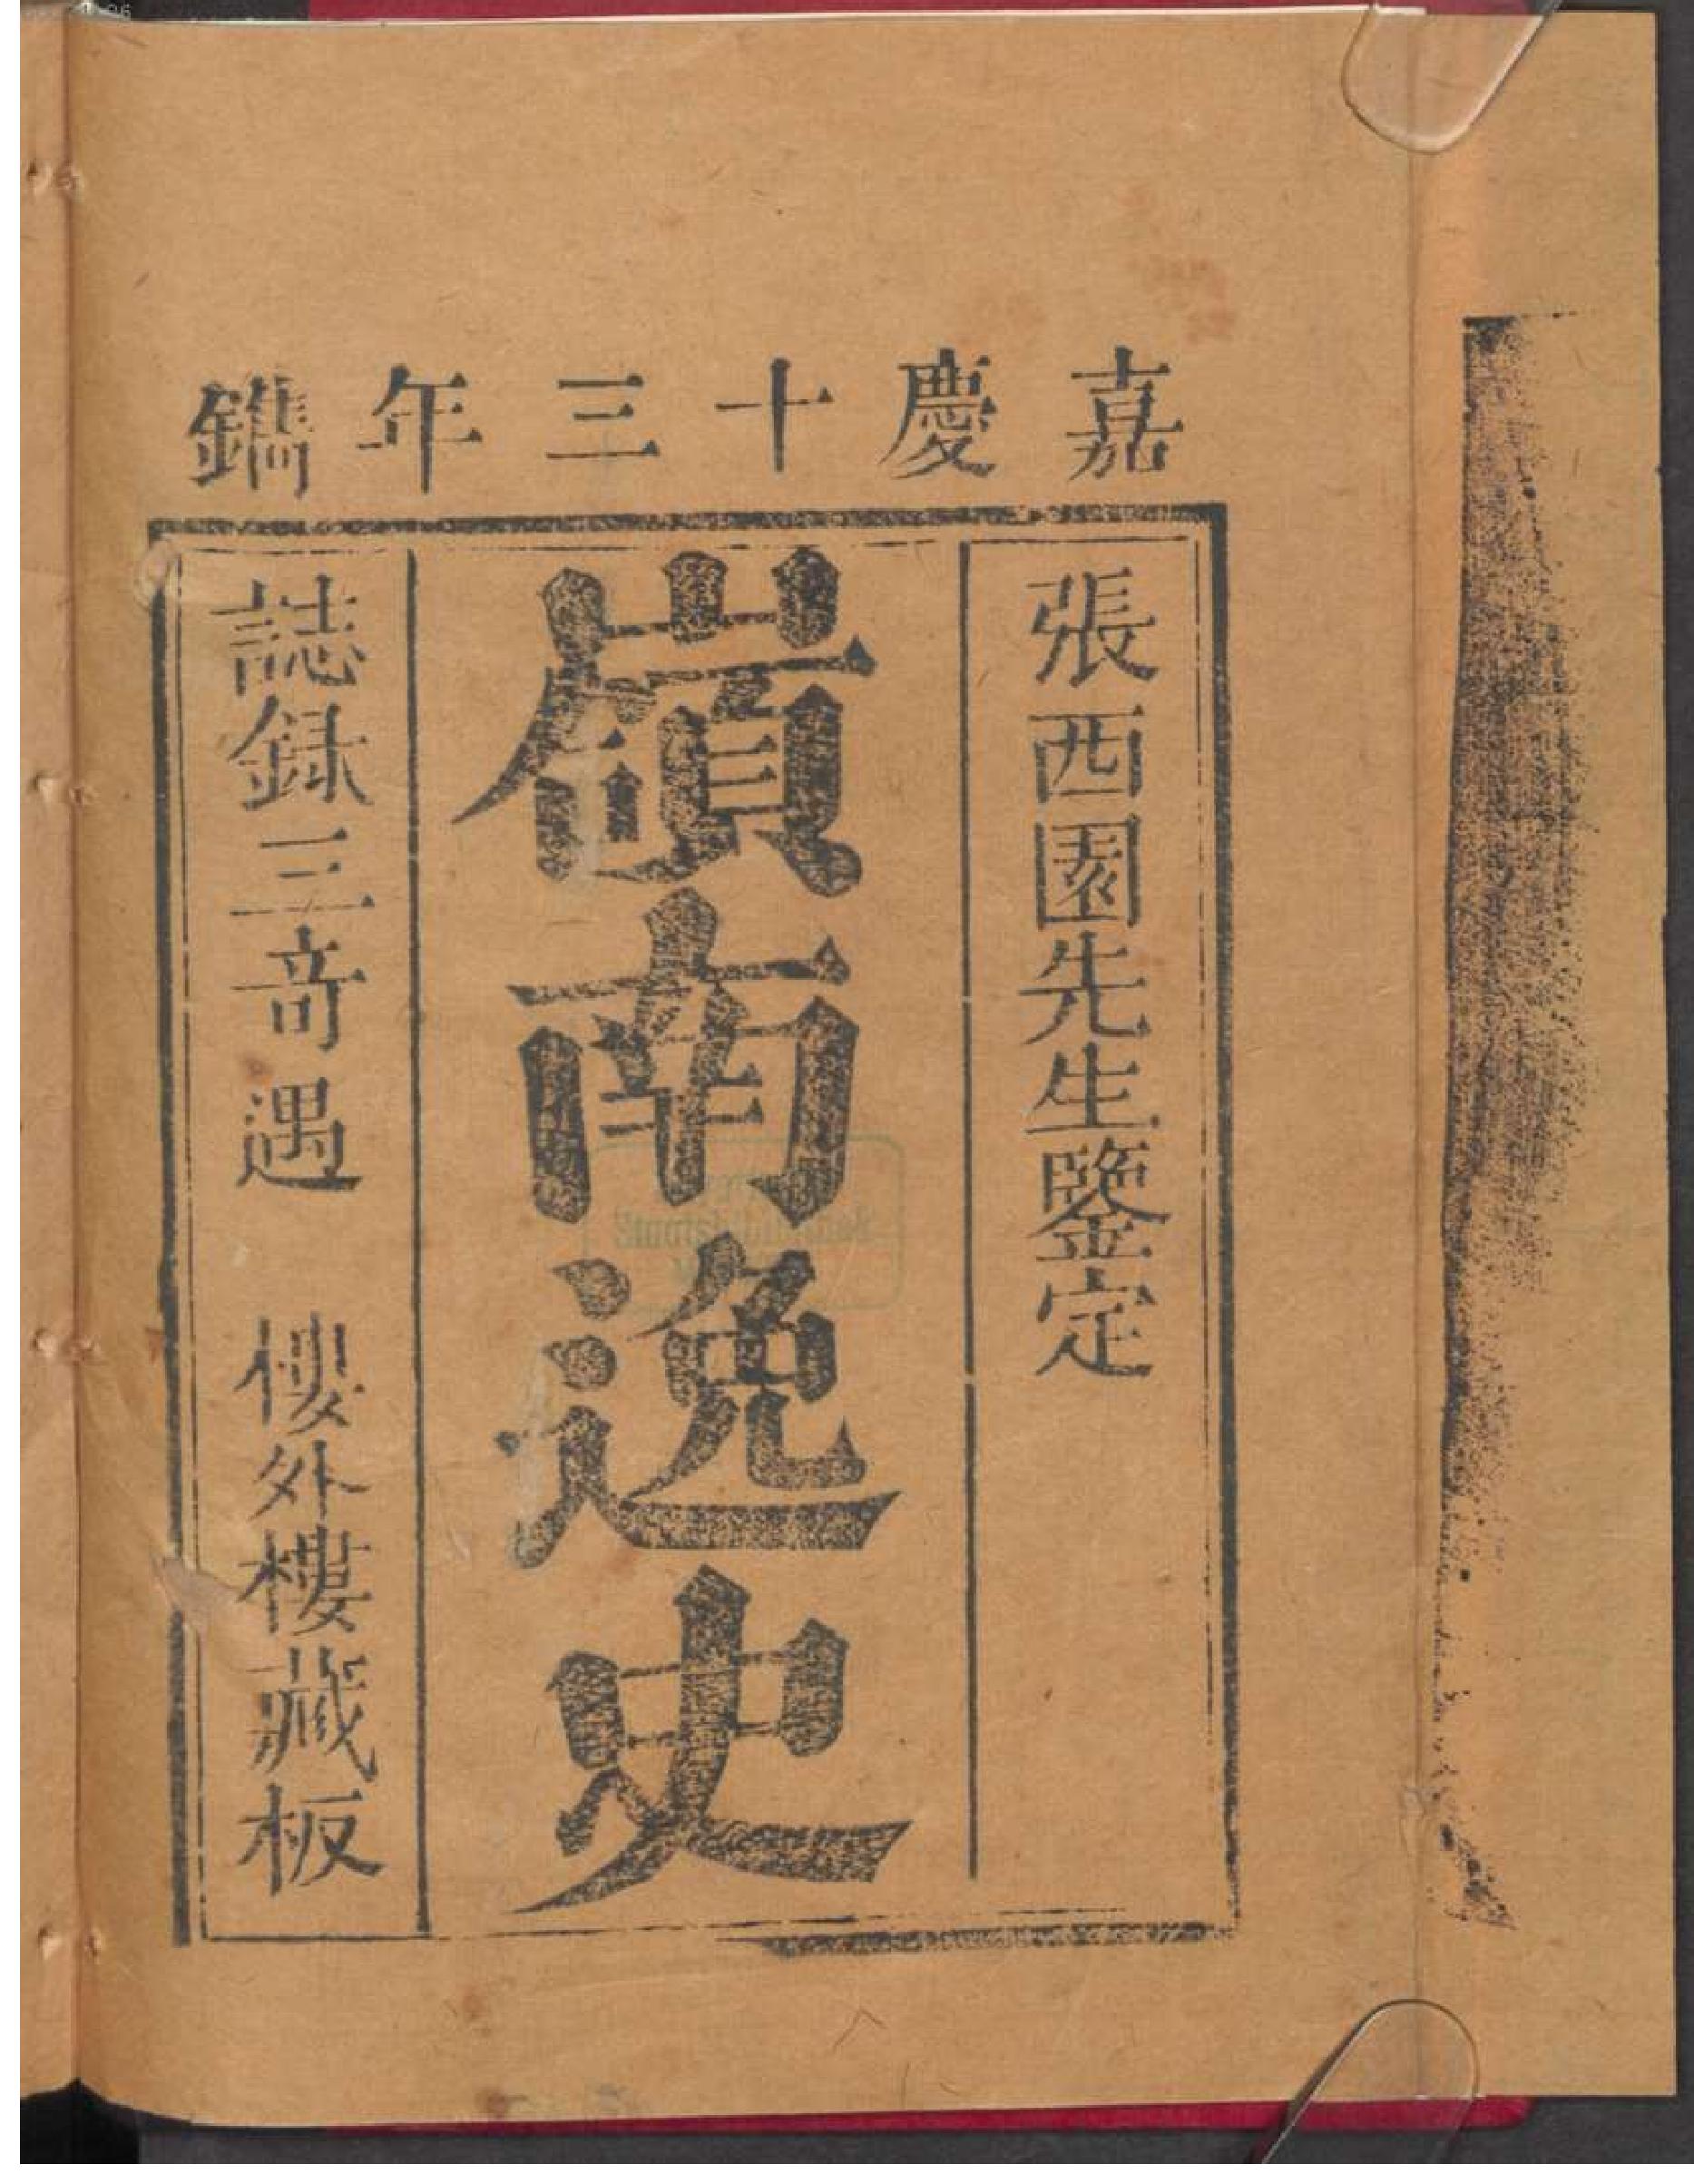 嘉慶十三年鐫
張西園先生鑒定
嶺南逸史
誌録三竒遇 樓外樓藏板